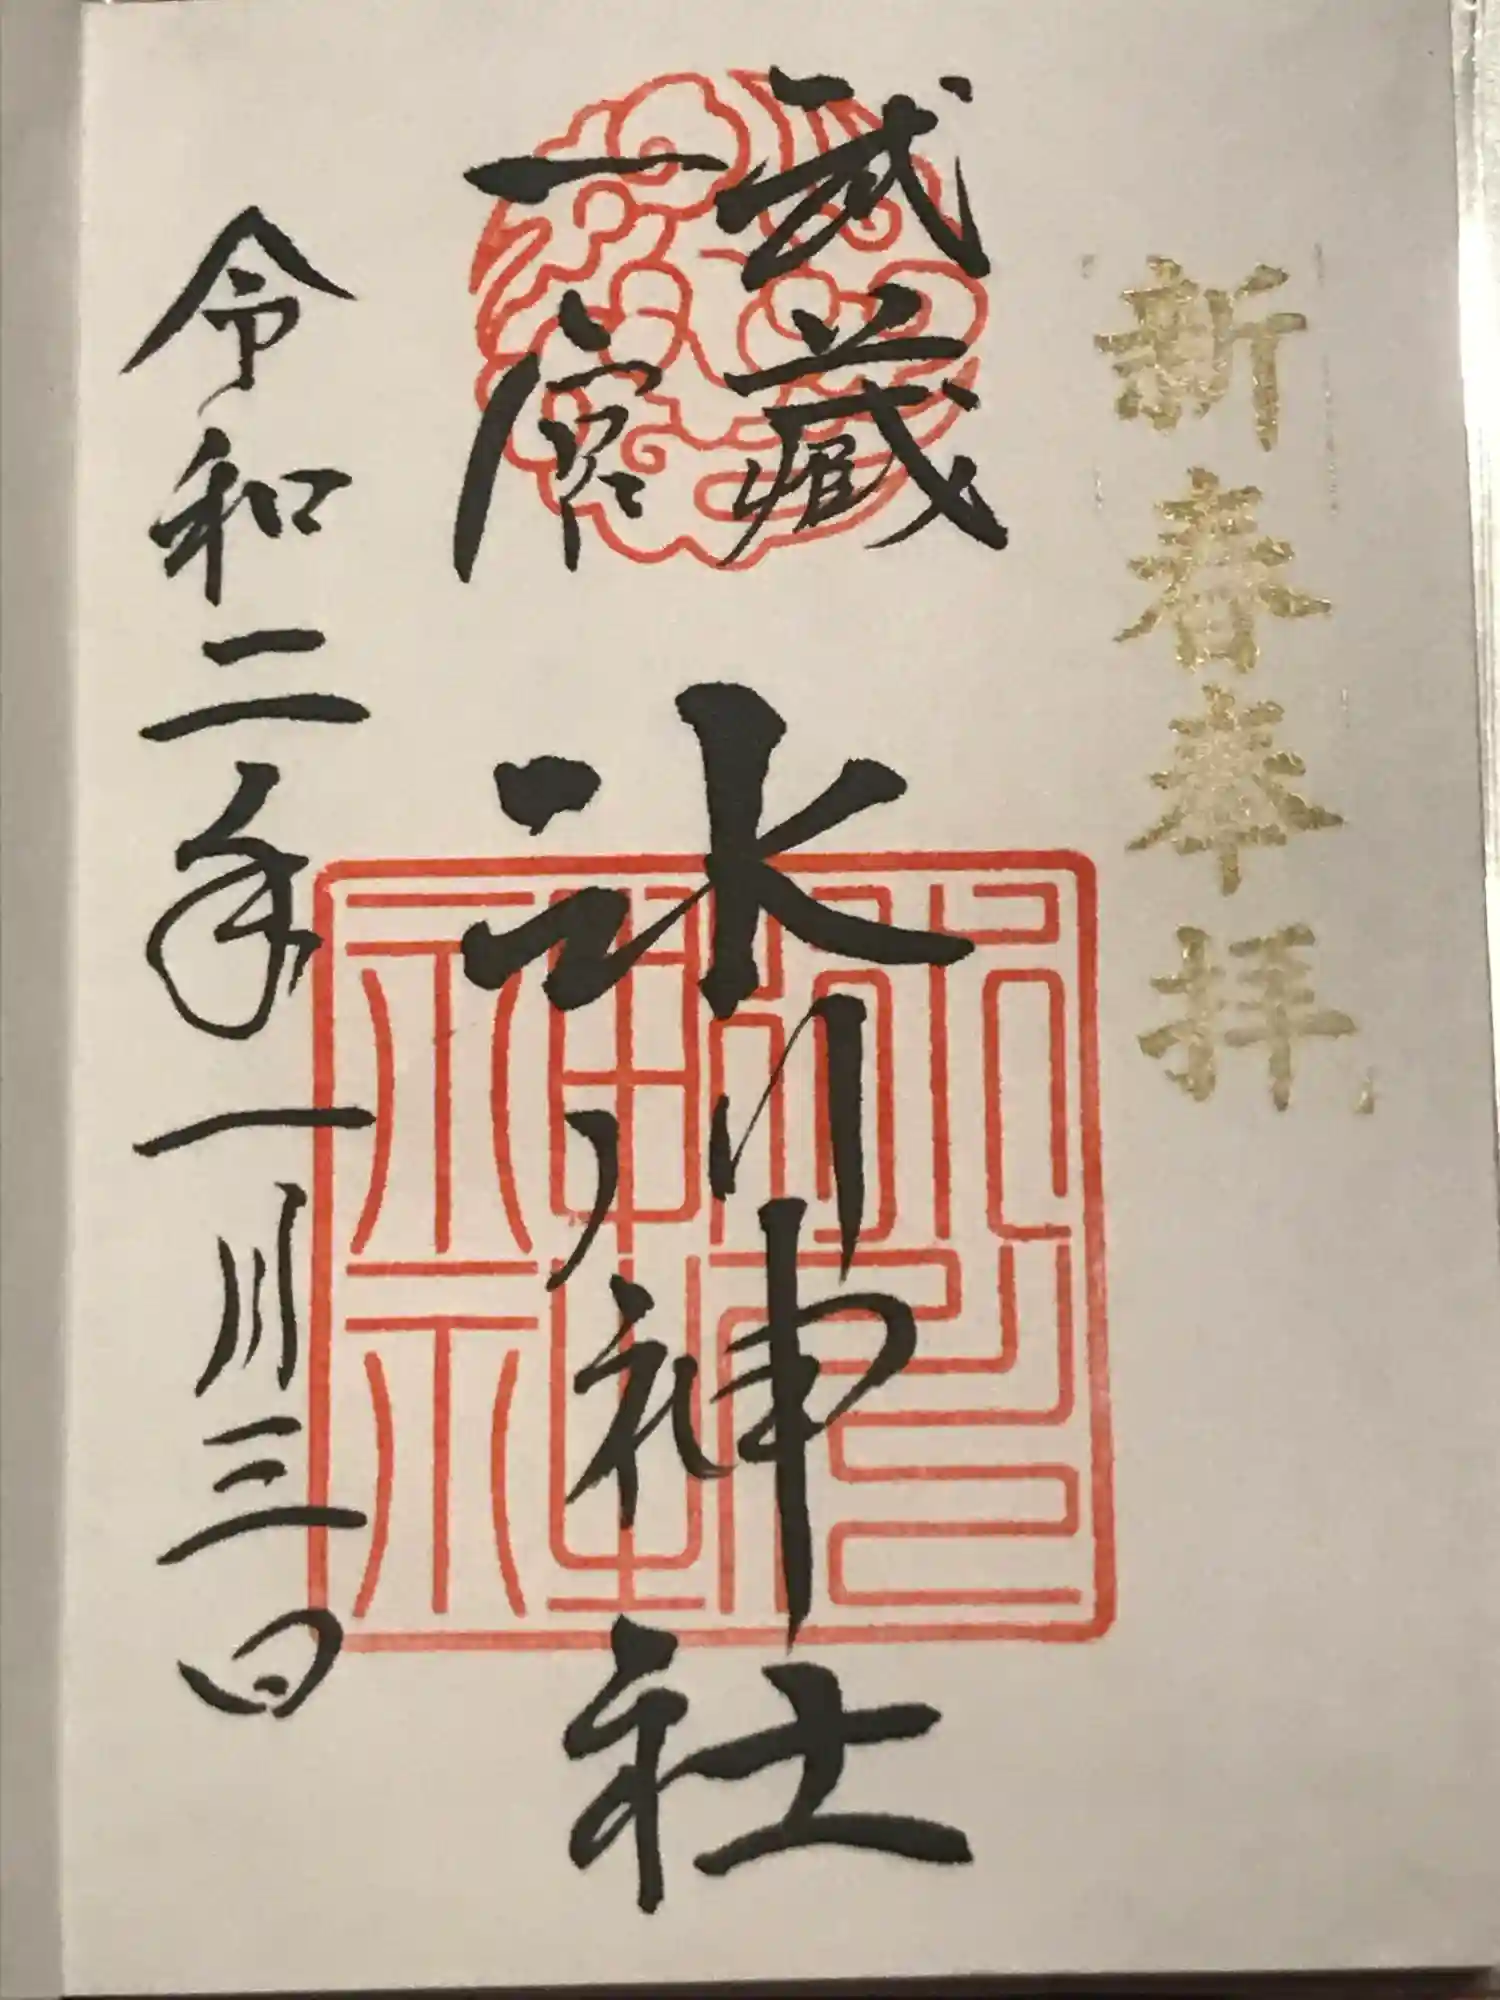 新春奉拝
武蔵
一宮
氷川神社
令和二年一月三日
氷川神社